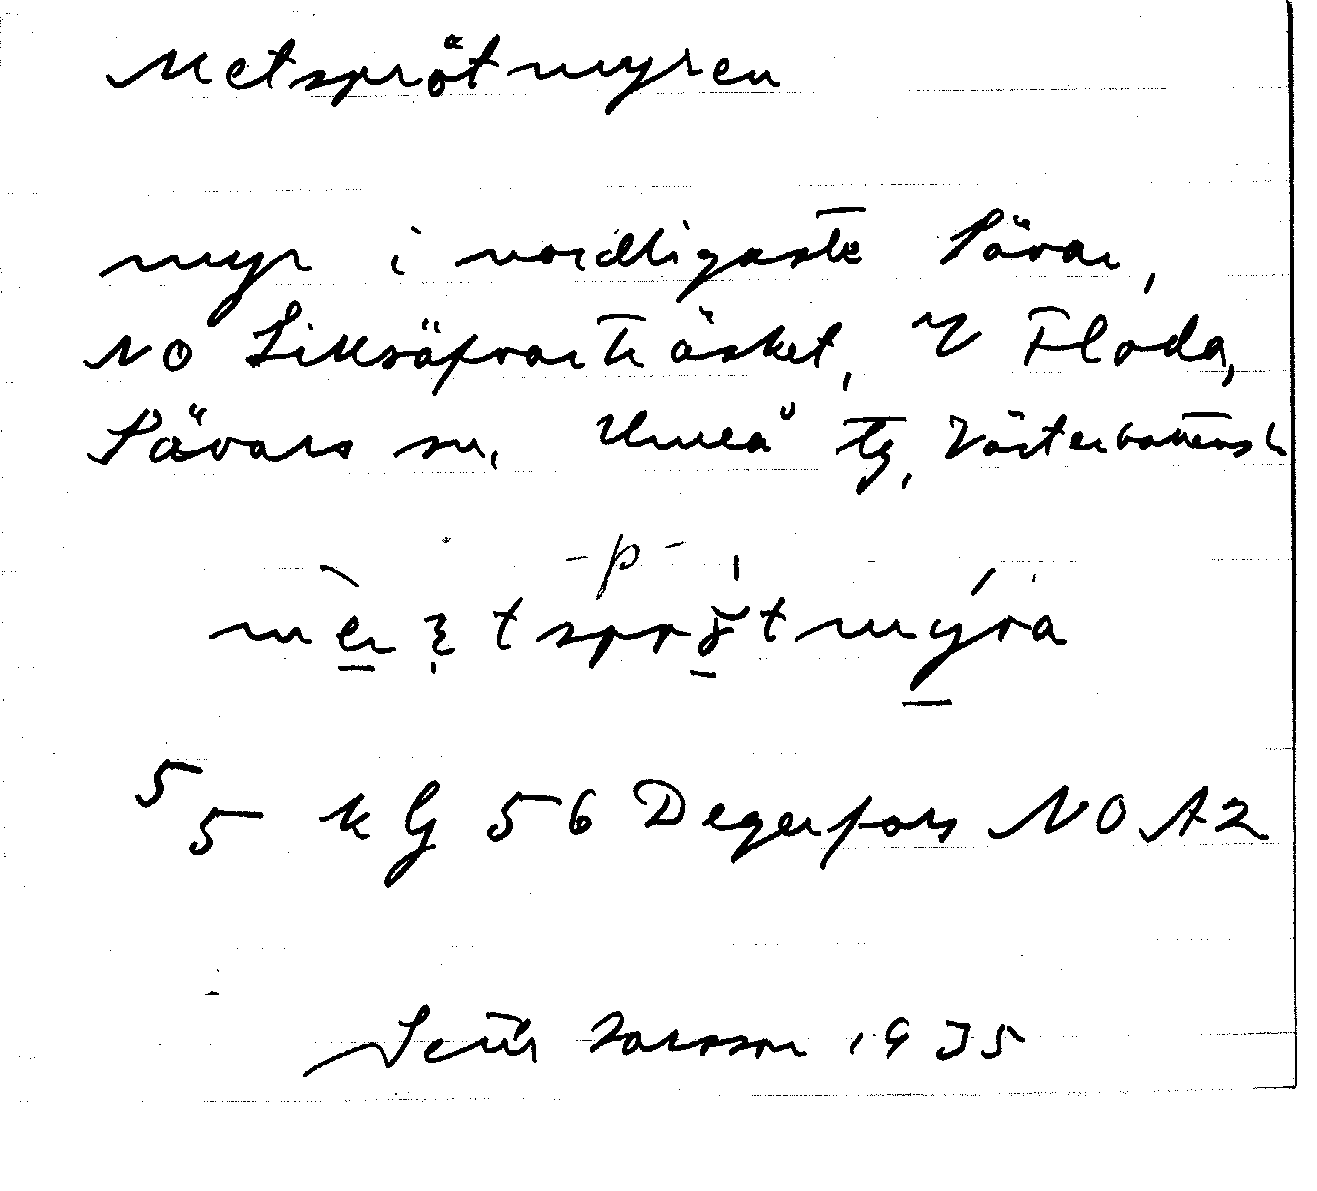 Metsprötmyren
myr i nordligaste Sävar,
NO Liksåvarträsket, V Floda,
Sävars sn, Umeå tg, Västerbottens l.
-p-
5 5 k G 56 Degerfors NO A2
Larsson 1935